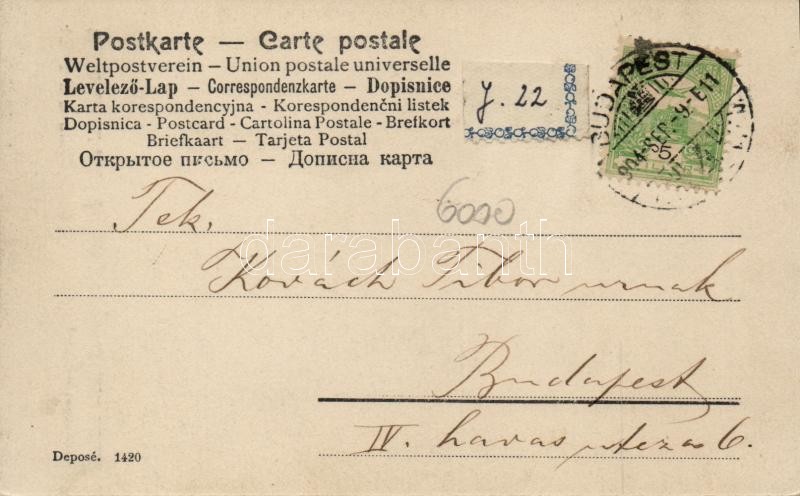 Postkarte — Carte postale
Weltpostverein – Union postale universelle
Levelező-Lap – Correspondenzkarte – Dopisnice
Karta korespondencyjna - Korespondenčni listek
Dopisnica - Postcard - Cartolina Postale - Brefkort
Briefkaart — Tarjeta Postal
Открытое письмо — Дописна карта
J. 22
BUDAPEST
904 SEP -9 E11
5
6000
Tek.
Kovách Tibor urnak
darabanth
Budapest
IV. havas utcza 6.
Deposé. 1420